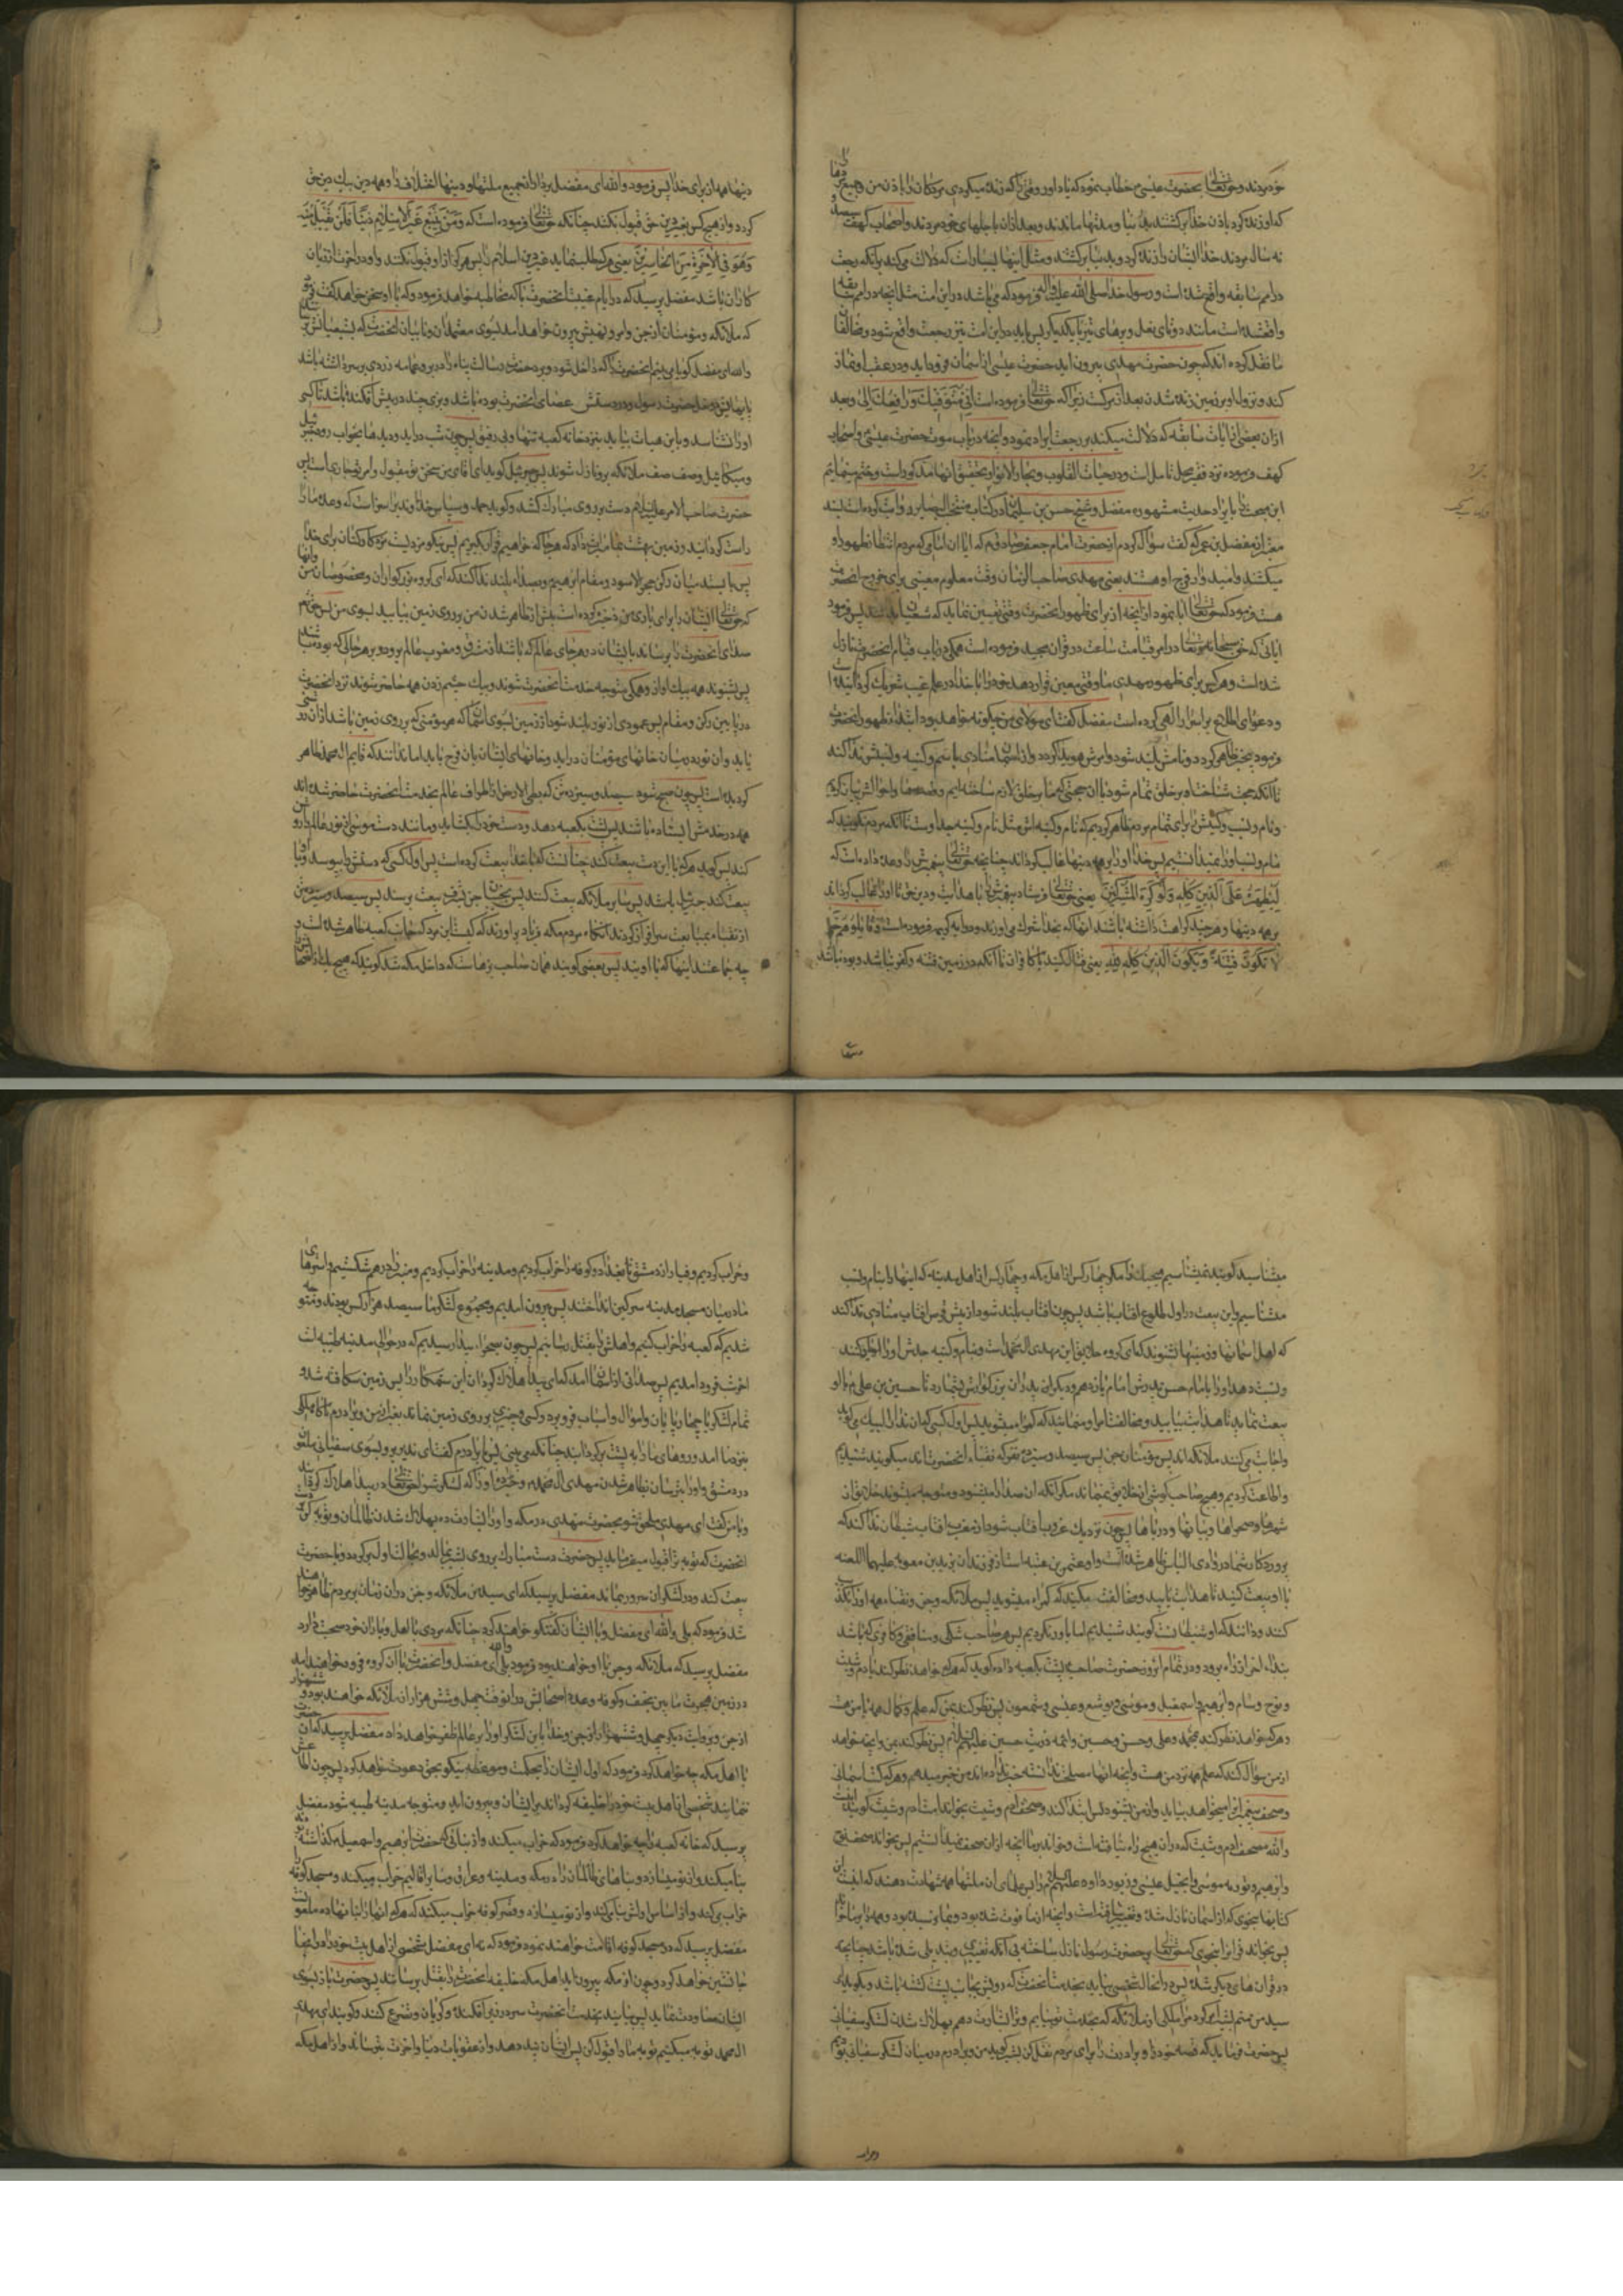 خود مردند و حق تعالی بحضرت عیسی خطاب نمود که یاد اور وقتی را که زنده میکردی مردکان را باذن من و جمیع مردها
که او زنده کرد باذن خدا برکشتند بدنیا و مدتها ماندند و بعد ازان باجلهای خود مردند و اصحاب کهف سیصد و
نه سال مردند خدا ایشان را زنده کرد و بدنیا برکشتند و مثل اینها بسیار است که دلالت می کند برانکه رجعت
در امم سابقه واقع شده است و رسول خدا صلی الله علیه واله فرمود که می باشد در این امت مثل انچه در امم سابقه
واقع شده است مانند دو تای نعل و پرهای تیر با یکدیگر پس باید در این امت نیز رجعت واقع شود و مخالفان
ما نقل کرده اند که چون حضرت مهدی بیرون اید حضرت عیسی از اسمان فرود اید و در عقب او نماز
کند و نزول او بر زمین زنده شدن بعد از مرکست زیرا که حق تعالی فرموده است انی متوفیک و رافعک الی و بعد
ازان بعضی از ایات سابقه که دلالت میکند بر رجعت ایراد نمود و انچه در باب موت حضرت عیسی و اصحاب
کهف فرموده نزد فقیر محل تامل است و در حیات القلوب و بحار الانوار تحقیق انها مذکور است و ختم مینمایم
این مبحث را بایراد حدیث مشهوره مفضل و شیخ حسن بن سلیمان در کتاب منتخب البصایر روایت کرده است بسند
معتبر از مفضل بن عمر که گفت سؤال کردم از حضرت امام جعفر صادق م که ایا ان امامی که مردم انتظار ظهور او
میکشند و امیدوار فرج او هستند یعنی مهدی صاحب الزمان وقت معلوم معینی برای خروج انحضرت
هست فرمود که حق تعالی ابا نمود از انچه از برای ظهور انحضرت وقتی تعیین نماید که شیعیان بدانند پس فرمود
ایاتی که حق سبحانه وتعالی در امر قیامت ساعت در قران مجید فرموده است همکی در باب قیام انحضرت نازل
شده است و هر کس برای ظهور مهدی ما وقتی معین قرار دهد خود را با خدا در علم غیب شریک کردانیده است
و دعوای اطلاع بر اسرار الهی کرده است مفضل کفت ای مولای من چکونه خواهد بود ابتدا ظهور انحضرت
فرمود بیخبر ظاهر کردد و نامش بلند شود و امرش هویدا کردد و از اسمان منادی باسم و کنیه و نسبش ندا کند
تا انکه حجت شناختن او بر خلق تمام شود با ان حجتی که ما بر خلق لازم ساخته ایم و قصها و احوالش بیان کردیم
و نام و نسب و کنیتش را برای تمام مردم ظاهر کردیم که نام و کنیه اش مثل نام و کنیه جد اوست تا انکه مردم نکویند که
نام و نسب او را نمیدانستیم پس خدا او را بر همه دینها غالب کرداند چنانچه حق تعالی پیغمبرش را وعده داده است که
لیظهره علی الدین کله ولو کره المشرکون یعنی حق تعالی فرستاد پیغمبرش را با هدایت و دین حق تا او را غالب کرداند
بر همه دینها و هر چند کراهت داشته باشند انها که بخدا شرک می اورند و در ایه کریمه فرموده است و قاتلوهم حتی
لا تکون فتنة ویکون الدین کله لله یعنی قتال کنید با کافران تا انکه در زمین فتنه و کفر نباشد و بوده باشد
دینها
دینها همه از برای خدا پس فرمود والله ای مفضل بردارد از جمیع ملتها و دینها اختلاف را و همه دین یک دین حق
کردد و از هیچ کس بغیر دین حق قبول نکنند چنانکه حق تعالی فرموده است که ومن یبتغ غیر الاسلام دینا فلن یقبل منه
وهو فی الاخرة من الخاسرین یعنی هر که طلب نماید غیر دین اسلام را پس هرکز از او قبول نکنند و او در اخرت از زیان
کاران باشد مفضل پرسید که در ایام غیبت انحضرت با که مخاطبه خواهد فرمود و که با او سخن خواهد کفت فرمود
که ملائکه و مؤمنان از جن و امر و نهیش بیرون خواهد امد بسوی معتمدان و نایبان انحضرت که بشیعیانش برسانند
والله ای مفضل کویا می بینم انحضرت را که داخل شود و برد حضرت رسالت پناه را در بر و عمامه زردی بر سر داشته باشد
پایهایش دو نعل حضرت رسول و در دستش عصای انحضرت بوده باشد و بزی چند در پیش افکنده باشد تا کسی
او را نشناسد و باین هیات بیاید بنزد خانه کعبه تنها و بی رفیق پس چون شب دراید و دیدها بخواب رود جبرئیل
و میکائیل و صف صف ملائکه برو نازل شوند پس جبرئیل کوید ای اقای من سخن تو مقبول و امر تو جاری است پس
حضرت صاحب الامر علیه السلام دست بر روی مبارک کشد و کوید حمد و سپاس خداوندی را سزاست که وعده ما را
راست کردانید و زمین بهشت بما میراث داد که هر جا که خواهیم قرار بکیریم پس نیکو مزدیست مزد کارکنان برای خدا
پس بایستد میان رکن حجر الاسود و مقام ابراهیم و بصدای بلند ندا کند که ای کروه بزرکواران و مخصوصان من و انها
که حق تعالی ایشان را برای یاری من ذخیره کرده است پیش از ظاهر شدن من بر روی زمین بیایید بسوی من پس حق تعالی
صدای انحضرت را برساند بایشان در هر جای عالم که باشند از مشرق و مغرب عالم بر و دو بر هر حالی که بوده باشند
پس بشنوند همه بیک اواز و همکی متوجه خدمت انحضرت شوند و بیک چشم زدن همه حاضر شوند نزد انحضرت
در مابین رکن و مقام پس عمودی از نور بلند شود از زمین بسوی اسمان که هر مؤمنی که بر روی زمین باشد ازان روشنی
یابد و ان نور در میان خانهای مؤمنان دراید و جانهای ایشان بان فرح یابد اما ندانند که قایم ال محمد ظاهر
کردیده است پس چون صبح شود سیصد و سیزده تن که بطی الارض از اطراف عالم بخدمت انحضرت حاضر شده اند
همه در خدمتش ایستاده باشند پس پشت بکعبه دهد و دست خود را بکشاید و مانند دست موسی از نور عالم را روشن
کند پس کوید هر که با این دست بیعت کند چنانست که با خدا بیعت کرده است پس اول کسی که دستش را ببوسد و با او
بیعت کند جبرئیل باشد پس سایر ملائکه بیعت کنند پس نجیبان جن بشرف بیعت برسند پس سیصد و سیزده تن
از نقبا بمبایعت سرافراز کردند انکاه مردم مکه فریاد براورند که کیست این مرد که در جانب کعبه ظاهر شده است و
چه جماعتند اینها که با اویند پس بعضی کویند همان صاحب بزهاست که داخل مکه شد کویند که هیچیک از اصحابش را
میشناسید کویند نمیشناسیم هیچیک را مکر چهار کس از اهل مکه و چهار کس از اهل مدینه که اینها را بنام و نسب
میشناسیم و این بیعت در اول طلوع افتاب باشد پس چون افتاب بلند شود از پیش قرص افتاب منادی ندا کند
که اهل اسمانها و زمینها بشنوند که ای کروه خلایق این مهدی ال محمد است و بنام و کنیه جدش او را یاد کند
و نسبت دهد او را بامام حسن پدرش امام یازدهم و دیکر از پدران بزرکوارش بشمارد تا حسین بن علی م با او
بیعت نمایید تا هدایت بیابید و مخالفت او منمایید که کمراه میشوید پس اول کسی که ان ندا را لبیک کوید
و اجابت می کنند ملائکه اند پس مؤمنان جن پس سیصد و سیزده نفر که نقباء انحضرت اند میکویند شنیدیم
و اطاعت کردیم و هیچ صاحب کوشی از خلایق نمیماند مکر انکه ان صدا را میشنود و متوجه میشوند خلایق از
شهرها و صحراها و بیابانها و دریاها پس چون نزدیک غروب افتاب شود از مغرب افتاب شیطان ندا کند که
پروردکار شما در وادی الیابس ظاهر شده است و او عثمان بن عنبسه است از فرزندان یزید بن معویه علیهما اللعنه
با او بیعت کنید تا هدایت یابید و مخالفت مکنید که کمراه میشوید پس ملائکه و جن و نقباء همه او را تکذیب
کنند و دانند که او شیطان است کویند شنیدیم اما باور نکردیم پس هر صاحب شکی و منافقی و کافری که باشد
بنداء اخر از راه برود و در تمام انروز حضرت صاحب م پشت بکعبه داده کوید که هر که خواهد نظر کند بادم و شیث
و نوح و سام و ابراهیم و اسمعیل و موسی و یوشع و عیسی و شمعون پس نظر کند بمن که علم و کمال همه با من هست
و هر که خواهد نظر کند بمحمد و علی و حسن و حسین و ائمه ذریت حسین علیهم السلام پس نظر کند بمن و انچه خواهد
از من سؤال کند که علم همه نزد من هست و انچه انها مصلحت ندانسته خبر نداده اند من خبر میدهم و هر که کتب اسمانی
و صحف پیغمبران را میخواهد بیاید و از من بشنود پس ابتدا کند و صحف ادم و شیث بخواند امت ادم و شیث کویند
والله اینست صحف ادم و شیث که در ان هیچ راه نیافته است و خواند بر ما انچه ازان صحف نمیدانستیم پس بخواند صحف نوح
و ابراهیم و توریه موسی و انجیل عیسی و زبور داود علیهم السلام را پس علمای ان ملتها همه شهادت دهند که اینست
کتابها بنحوی که از اسمان نازل شده و تغییر نیافته است و انچه از ما فوت شده بود و بما نرسیده بود همه را بر ما خواند
پس بخواند قران را بنحوی که حق تعالی بر حضرت رسول نازل ساخته بی انکه تغییری و تبدیلی شده باشد چنانچه
در قران های دیکر شد پس در انحال شخصی بیاید بخدمت انحضرت که رویش بجانب پشت کشته باشد و بکوید ای
سید من منم بشیر امر کرد مرا ملکی از ملائکه که بخدمت تو بیایم و ترا بشارت دهم بهلاک شدن لشکر سفیانی
پس حضرت فرماید که قصه خود را و برادرت را برای مردم نقل کن بشیر کوید من و برادرم در میان لشکر سفیانی بودیم
و خراب
و خراب کردیم دنیا را از دمشق تا بغداد و کوفه را خراب کردیم و مدینه را خراب کردیم و منبر را درهم شکستیم و استرهای
ما در میان مسجد مدینه سرکین انداختند پس بیرون امدیم و مجموع لشکر ما سیصد هزار کس بودند و متوجه
شدیم که کعبه را خراب کنیم و اهلش را بقتل رسانیم پس چون صحراء بیدا رسیدیم که در حوالی مدینه طیبه است
اخر شب فرود امدیم پس صدائی از اسمان امد که ای بیدا هلاک کردان این ستمکاران را پس زمین شکافته شد و
تمام لشکر را با چهارپایان و اموال و اسباب فرو برد و کسی و چیزی بر روی زمین نماند بغیر از من و برادرم ناکاه ملکی
بنزد ما امد و روهای ما را به پشت برکردانید چنانکه می بینی پس با برادرم کفت ای نذیر برو بسوی سفیانی ملعون
در دمشق و او را بترسان بظاهر شدن مهدی ال محمد م و خبر ده او را که لشکرش را حق تعالی در بیدا هلاک کردانید
و با من کفت ای بشیر ملحق شو بحضرت مهدی در مکه و او را بشارت ده بهلاک شدن ظالمان و توبه کن بر دست
انحضرت که توبه ترا قبول میفرماید پس حضرت دست مبارک بر روی بشیر بمالد و بحالت اول برکردد و با حضرت
بیعت کند و در لشکر ان سرور بماند مفضل پرسید که ای سید من ملائکه و جن دران زمان بر مردم ظاهر خواهند
شد فرمود که بلی والله ای مفضل و با ایشان کفتکو خواهند کرد چنانکه مردی با اهل و یاران خود صحبت دارد
مفضل پرسید که ملائکه و جن با او خواهند بود فرمود بلی والله ای مفضل و انحضرت با ان کروه فرود خواهند امد
در زمین هجرت مابین نجف و کوفه و عدد اصحابش دران وقت چهل و شش هزار از ملائکه خواهند بود و ششهزار
از جن و بروایت دیکر چهل و ششهزار از جن و خدا باین لشکر او را بر عالم ظفر خواهد داد مفضل پرسید که ان حضرت
با اهل مکه چه خواهد کرد فرمود که اول ایشان را بحکمت و موعظه نیکو بحق دعوت خواهد کرد پس چون اطاعتش
نمایند شخصی از اهل بیت خود را خلیفه کرداند بر ایشان و بیرون اید و متوجه مدینه طیبه شود مفضل
پرسید که خانه کعبه را چه خواهد کرد فرمود که خراب میکند و از بنائی که حضرت ابراهیم و اسمعیل کذاشته بودند
بنا میکند و از نو میسازد و بناهای ظالمان را در مکه و مدینه و عراق و سایر اقالیم خراب میکند و مسجد کوفه را
خراب می کند و از اساس اولش بنا می کند و از نو میسازد و قصر کوفه خراب میکند که هر که انها را بنا نهاده ملعون است
مفضل پرسید که در مسجد کوفه اقامت خواهند نمود فرمود که نه ای مفضل شخصی از اهل بیت خود را در انجا
جانشین خواهد کرد و چون از مکه بیرون اید اهل مکه خلیفه انحضرت را بقتل برسانند پس حضرت باز بسوی
ایشان معاودت نماید پس بیایند بخدمت انحضرت سر در زیر افکنده و کریان و تضرع کنند و کویند ای مهدی
ال محمد توبه میکنیم توبه ما را قبول کن پس ایشان را پند دهد و از عقوبات دنیا و اخرت بترساند و از اهل مکه